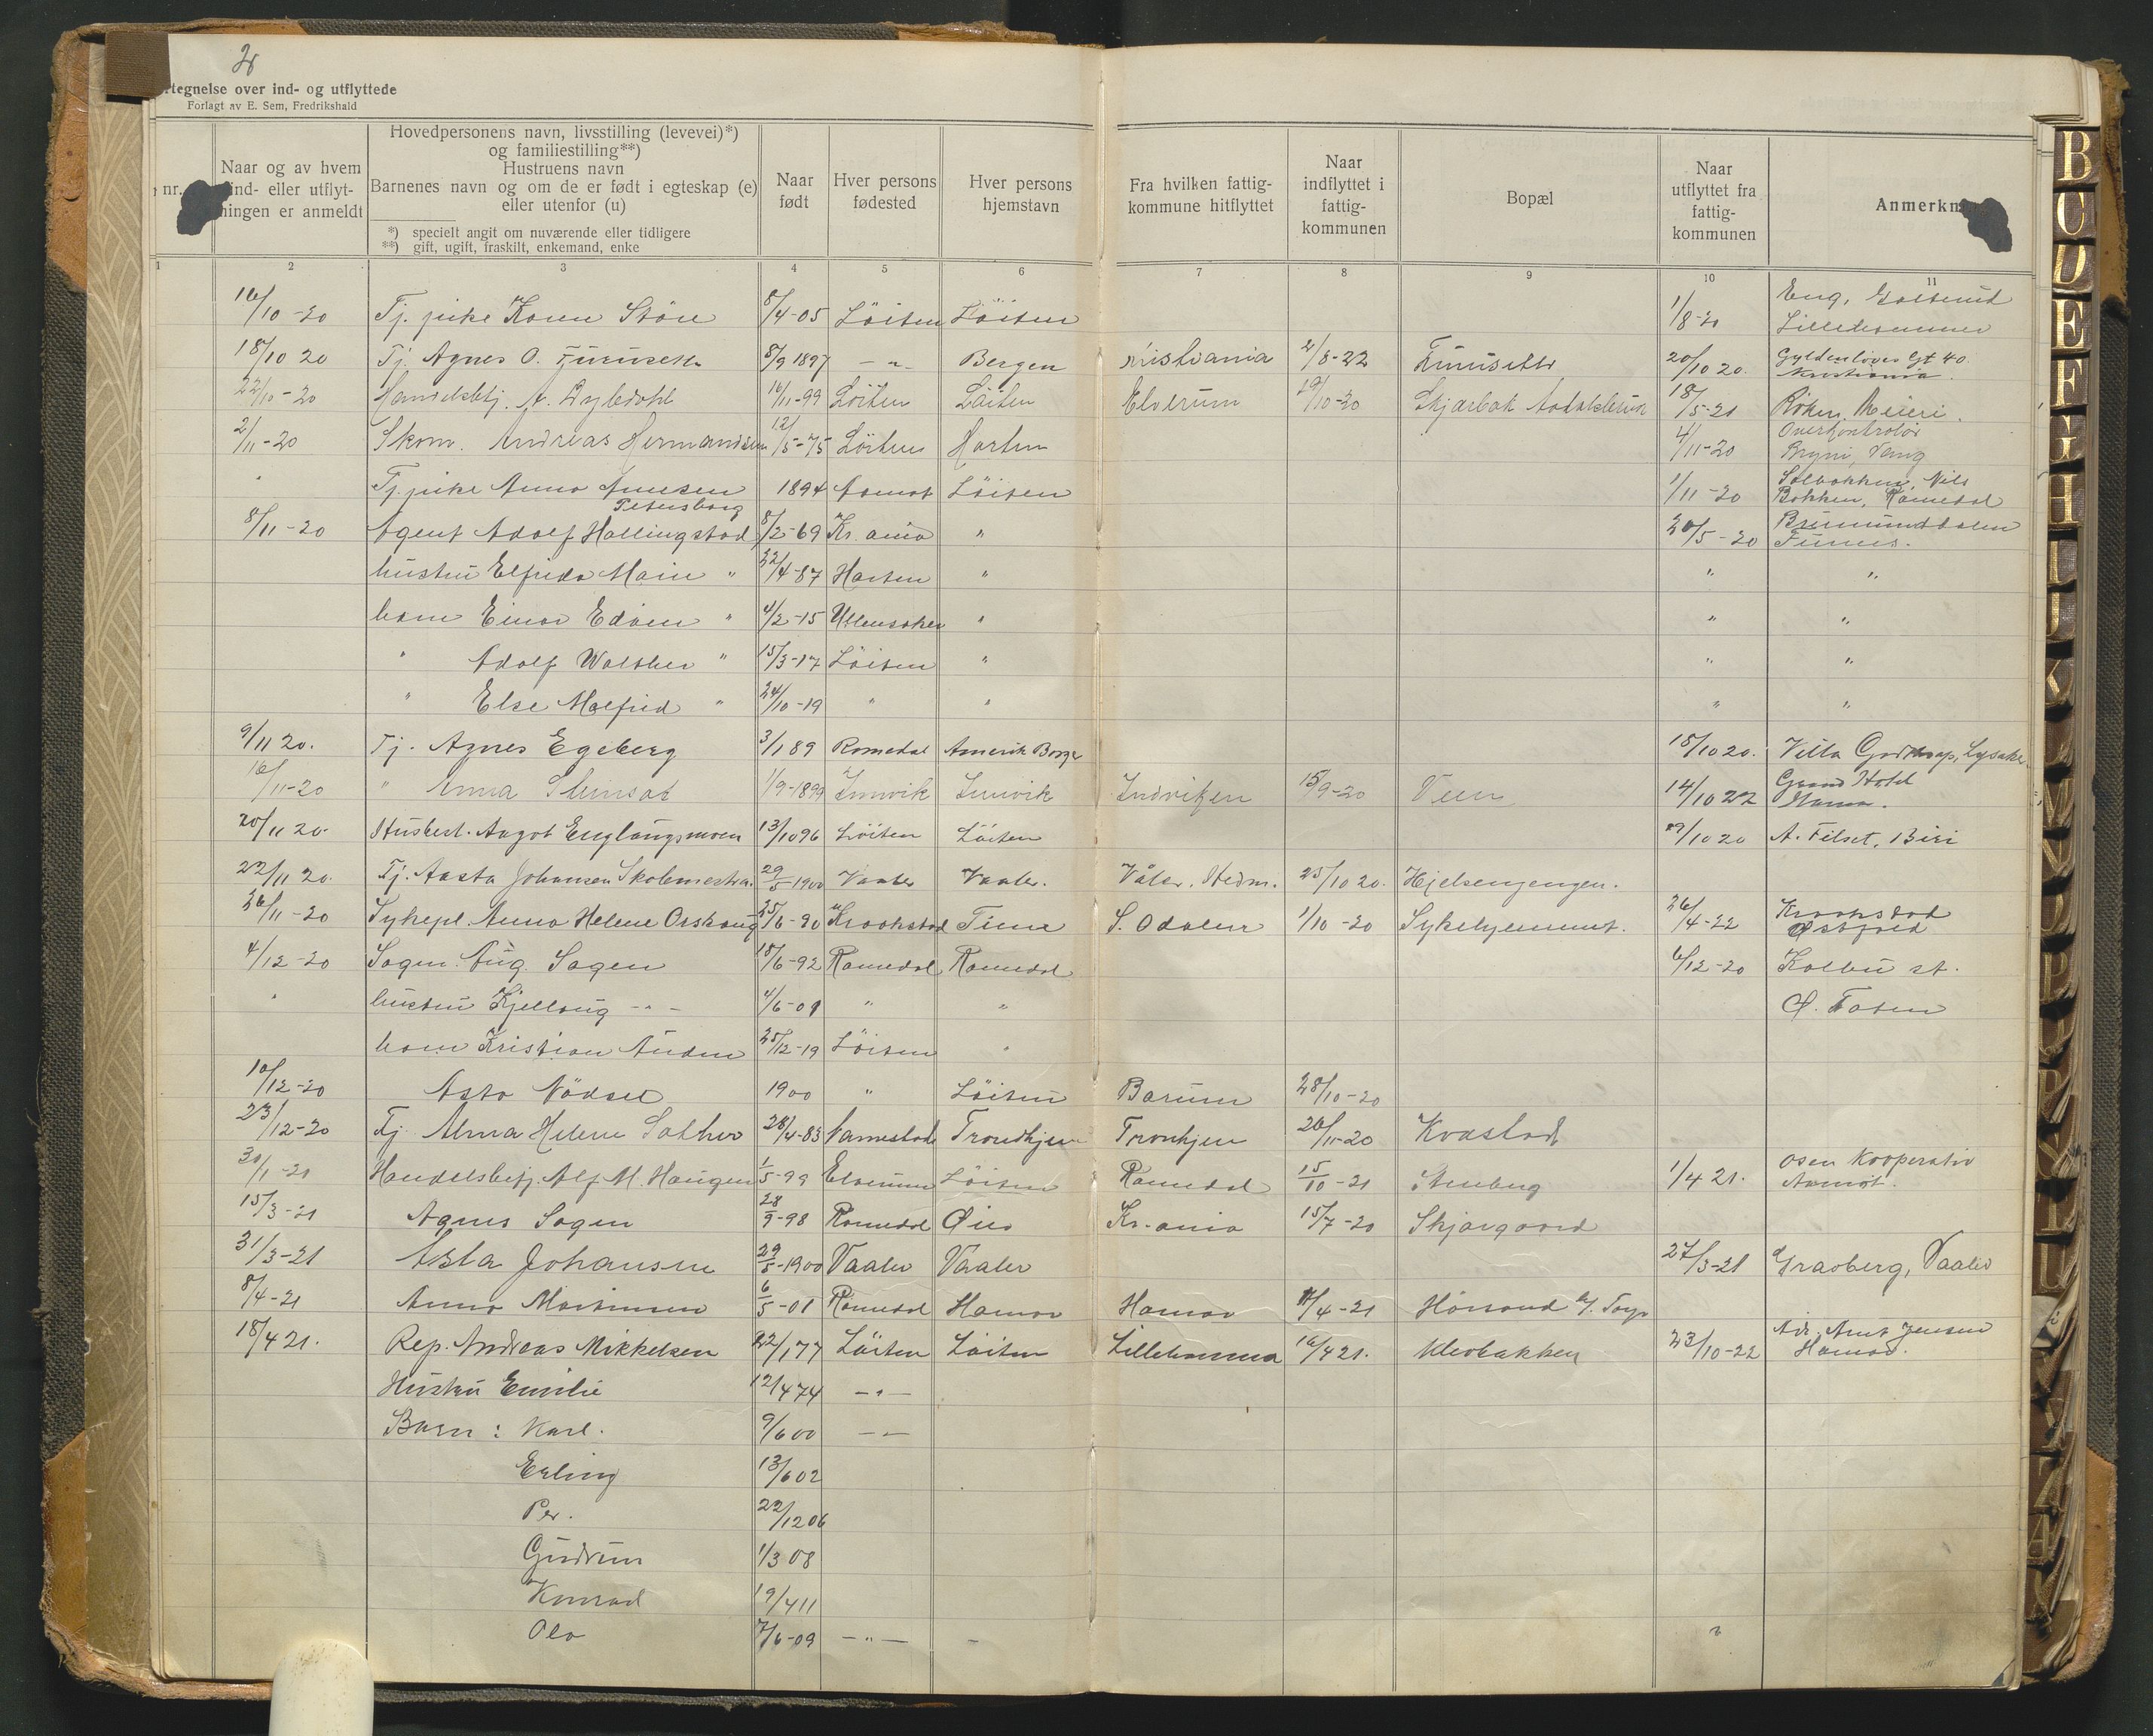 rtegnelse over ind- og utflyttede
Forlagt av E. Sem, Fredrikshald
nr.
Naar og av hvem
ind- eller utflyt-
ningen er anmeldt
Hovedpersonens navn, livsstilling (levevei)*)
og familiestilling**)
Hustruens navn
Barnenes navn og om de er født i egteskap (e)
eller utenfor (u)
*) specielt angit om nuværende eller tidligere
**) gift, ugift, fraskilt, enkemand, enke
Naar
født
Hver persons
fødested
Hver persons
hjemstavn
Fra hvilken fattig-
kommune hitflyttet
Naar
indflyttet i
fattig-
kommunen
Bopæl
Naar
utflyttet fra
fattig-
kommunen
Anmerkn
1 2 3 4 5 6 7 8 9 10 11
16/10-20 Tj. pike Karen Støre 8/4-05 Löiten Löiten 1/8-20 Eng,
Lillehammer
18/10 20 Tj. Agnes O. Furuseth 8/9 1897 -"- Bergen Kristiania 2/8-22 Furuseth 20/10 20. Gyldenløves Gt 40.
Kristiania.
22/10-20 Handelsbtj. A. Dybdahl 16/11-99 Löiten Löiten Elverum 19/10-20 Skjærbæk Aadalsbruk 18/5-21 Röken Meieri.
2/11-20 Skom. Andreas Hermandsen 12/5-75 Löiten Løiten 4/11-20 Overkontrolör
Vang
" Tj. pike Anna Amesen 1894 Aamot Löiten 1/11-20 Solbakken, Nils
Bakken, Romedal
Petersborg
8/11-20 Agent Adolf Hallingstad 8/2-69 Kr.ania " 20/5-20 Brumunddalen
Furnes.
hustru Elfrida Marie " 22/4-87 "  " "
barn Einar Edvin " 4/2-15 Ullensaker " " "
" Adolf Walther " 15/3-17 Löiten " " "
" Else Malfrid " 24/10-19 " " " "
9/11 20. Tj. Agnes Egeberg 3/1 89 Romedal Amerik Borger 15/10 20. Villa Godthaap, Lysaker.
16/11-20 " Anna 1/9-1899 Innvik Innvik Indviken 15/9-20 Veen 14/10 22 Grand Hotel
Hamar.
20/11 20. Husbest. Aagot Englaugsmoen 13/10 96 Löiten Löiten 29/10 20 A. Filset, Biri
22/11 20. Tj. Aasta Johansen Skolemestra. 29/5-1900 Vaaler Vaaler. Våler. Hedm. 25/10 20. Hjelsengengen.
26/11-20 Sykepl. Anna Helene Orskaug 25/6-90 Kraakstad Time S. Odalen 1/10-20 Sykehjemmet. 26/4-22 Kraakstad
Østfold
4/12-20 Sagm. Aug. Sagen 18/6-92 Romedal Romedal 6/12-20 Kolbu st.
" hustru Kjellaug -"- 4/6-01 " " Ø. Toten
barn Kristian Audun 25/12-19 Löiten "
10/12-20 Asta Nödsel 1900 " Löiten Bærum 28/10-20
23/12-20 Tj. Alma Helene Sæther 28/4-83 Namsstad Trondhjem Tronhjem 20/11-20 Kvæstad
30/1-21 Handelsbetj. Alf M. Haugen 1/5-99 Elverum Löiten Romedal 15/10-21 Stenberg 1/4 21. Osen Kooperativ
Aamot.
15/3-21 Agnes Sagen 28/9-98 Romedal Øier Kr.ania 15/7-20 Skjærgaard
31/3-21 Asta Johansen 29/5-1900 Vaaler Vaaler 27/3-21 Graaberg, Vaaler
8/4-21 Anna Martinsen 6/5-01 Romedal Hamar Hamar 11/4-21
18/4 21. Rep. Andreas Mikkelsen 22/1 77 Löiten Löiten Lillehammer 16/4 21. Klevbakken 23/10-22 Adr. Arnt Jensen
Hamar.
Hustru Emilie 12/4 74 -"-
Barn: Karl. 9/6 00 -"-
Erling 13/6 02
Per. 22/12 06
Gudrun 1/3 08
Konrad 19/4 11
Ola 7/6-09 -"- -
B
C
D
E
F
G
H
I
J
K